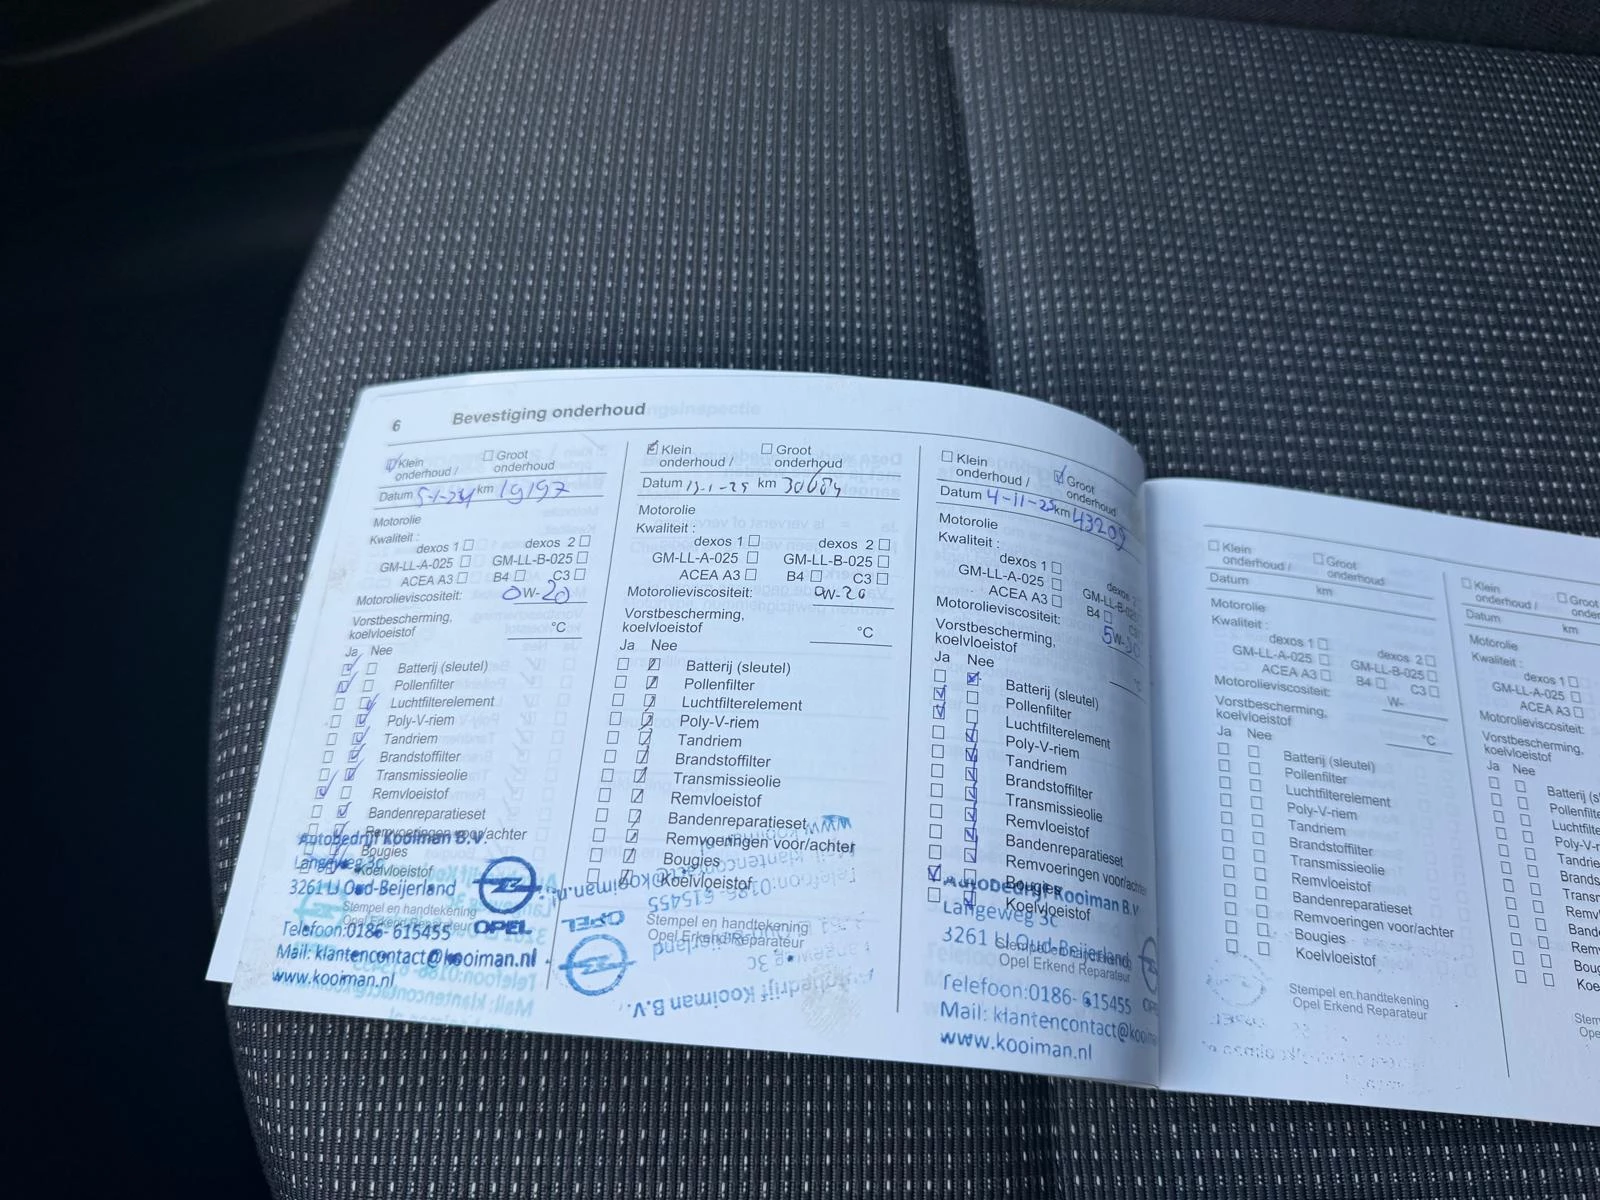 6 Bevestiging onderhoud
Klein onderhoud / Groot onderhoud
Datum 5-1-24 km 19197
Motorolie
Kwaliteit :
dexos 1 dexos 2
GM-LL-A-025 GM-LL-B-025
ACEA A3 B4 C3
Motorolieviscositeit: 0W-20
Vorstbescherming,
koelvloeistof °C
Ja Nee
Batterij (sleutel)
Pollenfilter
Luchtfilterelement
Poly-V-riem
Tandriem
Brandstoffilter
Transmissieolie
Remvloeistof
Bandenreparatieset
Remvoeringen voor/achter
Bougies
Koelvloeistof
Stempel en handtekening
Opel Erkend Reparateur
Autobedrijf Kooiman B.V.
Langeweg 3c
3261 LJ Oud-Beijerland
Telefoon:0186-615455
Mail: klantencontact@kooiman.nl
www.kooiman.nl
OPEL
Klein onderhoud / Groot onderhoud
Datum 13-1-25 km 30684
Motorolie
Kwaliteit :
dexos 1 dexos 2
GM-LL-A-025 GM-LL-B-025
ACEA A3 B4 C3
Motorolieviscositeit: 0W-20
Vorstbescherming,
koelvloeistof °C
Ja Nee
Batterij (sleutel)
Pollenfilter
Luchtfilterelement
Poly-V-riem
Tandriem
Brandstoffilter
Transmissieolie
Remvloeistof
Bandenreparatieset
Remvoeringen voor/achter
Bougies
Koelvloeistof
Stempel en handtekening
Opel Erkend Reparateur
Autobedrijf Kooiman B.V.
OPEL
Klein onderhoud / Groot onderhoud
Datum 4-11-25 km 43209
Motorolie
Kwaliteit :
dexos 1 dexos 2
GM-LL-A-025 GM-LL-B-025
ACEA A3 B4
Motorolieviscositeit: 5W-30
Vorstbescherming,
koelvloeistof °C
Ja Nee
Batterij (sleutel)
Pollenfilter
Luchtfilterelement
Poly-V-riem
Tandriem
Brandstoffilter
Transmissieolie
Remvloeistof
Bandenreparatieset
Remvoeringen voor/achter
Bougies
Koelvloeistof
Stempel en handtekening
Opel Erkend Reparateur
Autobedrijf Kooiman B.V
Langeweg 3c
3261 LJ Oud-Beijerland
Telefoon:0186-615455
Mail: klantencontact@kooi
www.kooiman.nl
Klein onderhoud / Groot onderhoud
Datum km
Motorolie
Kwaliteit :
dexos 1 dexos 2
GM-LL-A-025 GM-LL-B-025
ACEA A3 B4 C3
Motorolieviscositeit: W-
Vorstbescherming,
koelvloeistof °C
Ja Nee
Batterij (sleutel)
Pollenfilter
Luchtfilterelement
Poly-V-riem
Tandriem
Brandstoffilter
Transmissieolie
Remvloeistof
Bandenreparatieset
Remvoeringen voor/achter
Bougies
Koelvloeistof
Stempel en handtekening
Opel Erkend Reparateur
Klein onderhoud / Groot
Datum km
Motorolie
Kwaliteit :
dexos 1
GM-LL-A-025
ACEA A3
Motorolieviscositeit:
Vorstbescherming,
koelvloeistof
Ja Nee